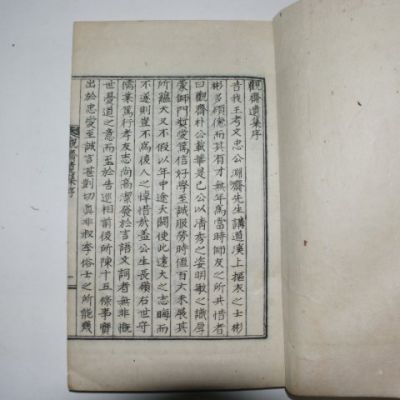 觀齋遺集序
昔我王考文忠公淵齋先生講道溪上摳衣之士彬
彬多碩德而其有才無年爲當時師友之所共惜者
曰觀齋朴公載華是已公以清秀之姿明敏之識早
蒙師門愛篤信好學至誠服勞時值百六未展其
所蘊天又不假以年中途夭閼使此遠大之志晦而
不遂則豈不爲後人之悼惜哉盖公生長嶺右世守
儒業篤行孝友志尚高潔發於言語文詞者無非慨
世憂道之意而至於告巡相前後所陳十五條事實
出於忠愛至誠言甚剴切眞非叔季俗士之所能幾
觀齋遺集序
一